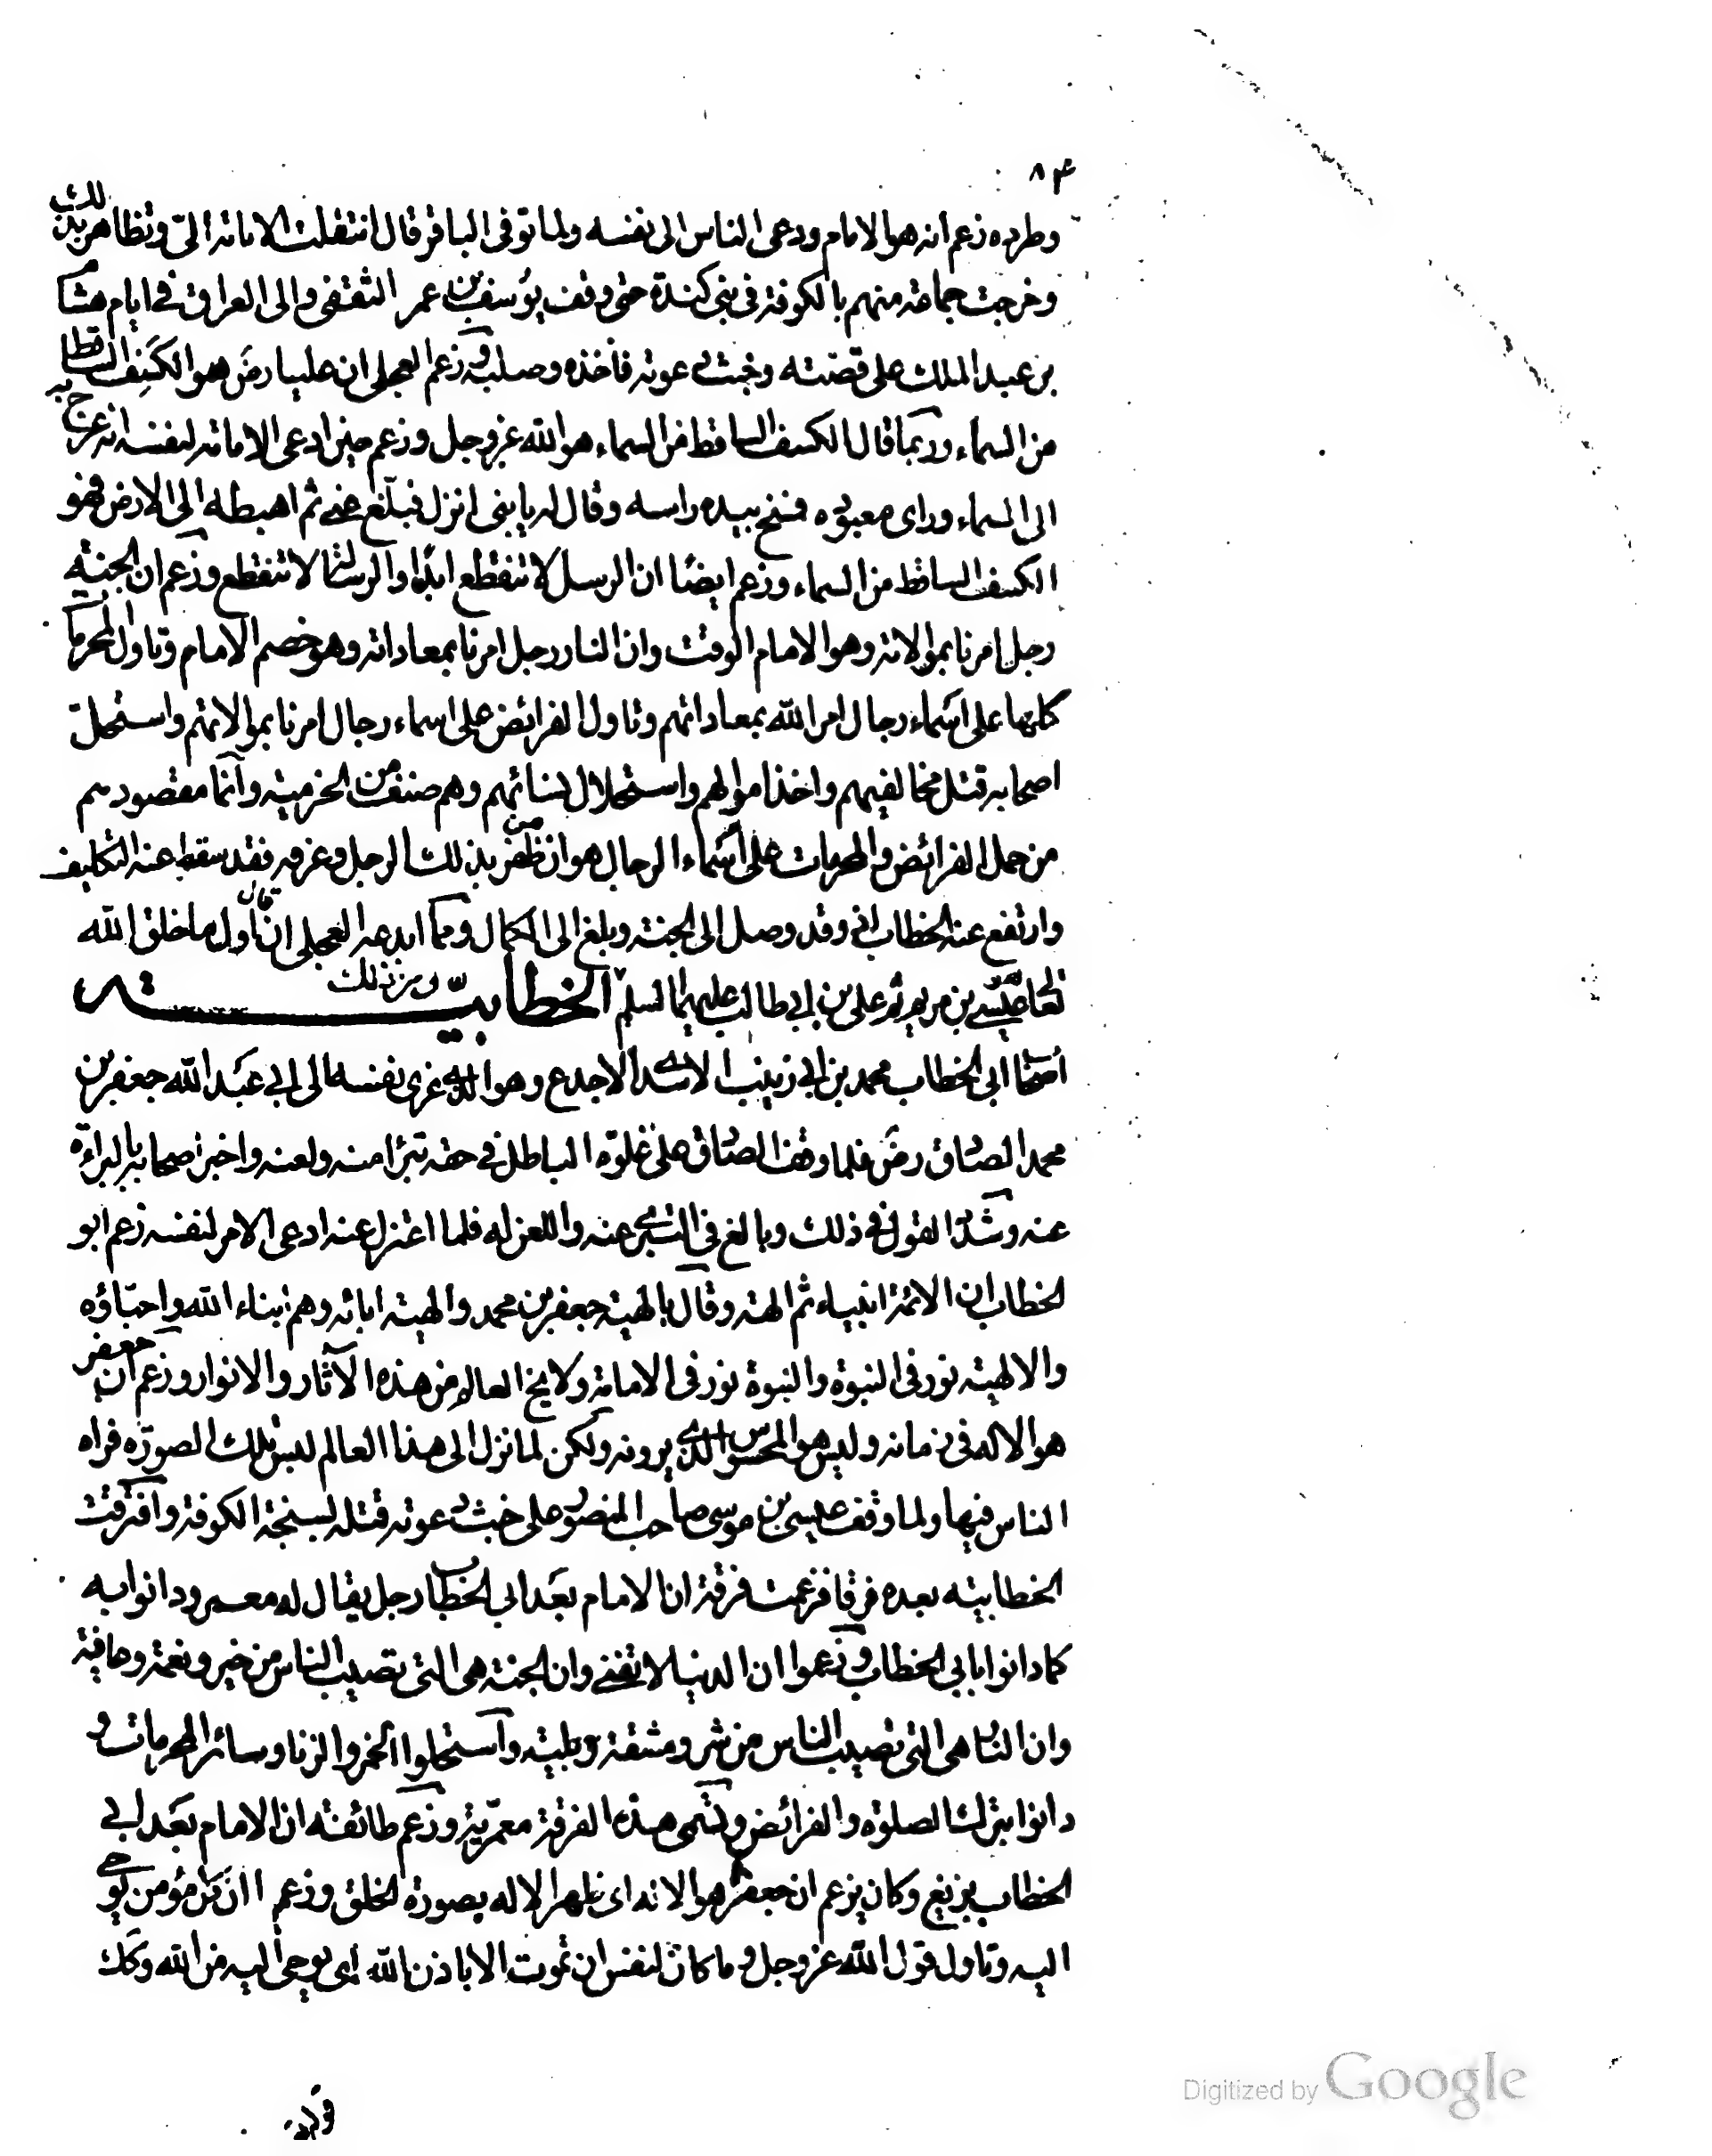 ٨٤
وطرده زعم انه هو الامام ودعى الناس الى نفسه ولما توفى الباقر قال انتقلت الامامة الىّ وتظاهر بذلك
وخرجت جماعة منهم بالكوفة فى بنى كندة حتى وقف يوسف بن عمر الثقفى والى العراق فى ايام هشام
بن عبد الملك على قصته وخبث دعوته فاخذه وصلبه وزعم العجلى ان عليا رضَ هو الكسف الساقط
من السماء وربما قال الكسف الساقط من السماء هو الله عز وجل وزعم حين ادعى الامامة لنفسه انه عرج به
الى السماء وراى معبوده فمسح بيده راسه وقال له يا بنى انزل فبلّغ عنى ثم اهبطه الى الارض فهو
الكسف الساقط من السماء وزعم ايضًا ان الرسل لا تنقطع ابدًا والرسالة لا تنقطع وزعم ان الجنة
رجل امرنا بموالاته وهو الامام الوقت وان النار رجل امرنا بمعاداته وهو خصم الامام وتاول المحرمات
كلها على اسماء رجال امر الله بمعاداتهم وتاول الفرائض على اسماء رجال امرنا بموالاتهم واستحل
اصحابه قتل مخالفيهم واخذ اموالهم واستحلال نسائهم وهم صنف من الخرمية وانما مقصودهم
من حمل الفرائض والمحرمات على اسماء الرجال هو ان من ظفر بذلك الرجل وعرفه فقد سقط عنه التكليف
وارتفع عنه الخطاب اذ وقد وصل الى الجنة وبلغ الى الكمال ومما ابدعه العجلى ان قال اول ما خلق الله
تعالى عيسى بن مريم ثم على بن ابى طالب عليهما السلم ومن ذلك الخطابيّة
اصحاب ابى الخطاب محمد بن ابى زينب الاسدى الاجدع وهو الذى عزى نفسه الى ابى عبد الله جعفر بن
محمد الصادق رضَ فلما وقف الصادق على غلوّه الباطل فى حقه تبرأ منه ولعنه واخبر اصحابه بالبراءة
عنه وشدّد القول فى ذلك وبالغ فى التبرى عنه واللعن له فلما اعتزل عنه ادعى الامر لنفسه زعم ابو
الخطاب ان الائمة انبياء ثم الهة وقال بالهية جعفر بن محمد والهية ابائه وهم ابناء الله واحبّاؤه
والالهية نور فى النبوة والنبوة نور فى الامامة ولا يخ العالم من هذه الآثار والانوار وزعم ان جعفر
هو الاله فى زمانه وليس هو المحسوس الذى يرونه ولكن لما نزل الى هذا العالم لبس تلك الصورة فراه
الناس فيها ولما وقف عيسى بن موسى صاحب المنصور على خبث دعوته قتله بسبخة الكوفة وافترقت
الخطابية بعده فرقا فزعمت فرقة ان الامام بعد ابى الخطاب رجل يقال له معمر ودانوا به
كما دانوا بابى الخطاب وزعموا ان الدنيا لا تفنى وان الجنة هى التى تصيب الناس من خير ونعمة وعافية
وان النار هى التى تصيب الناس من شر ومشقة وبلية واستحلوا الخمر والزنا وسائر المحرمات و
دانوا بترك الصلوة والفرائض وتسمى هذه الفرقة معمّرية وزعم طائفة ان الامام بعد ابى
الخطاب بزيغ وكان يزعم ان جعفرا هو الاله اى ظهر الاله بصورة الخلق وزعم ان كل مؤمن يوحى
اليه وتاول قول الله عز وجل وما كان لنفس ان تموت الا باذن الله اى يوحى اليه من الله وكك
Digitized by Google